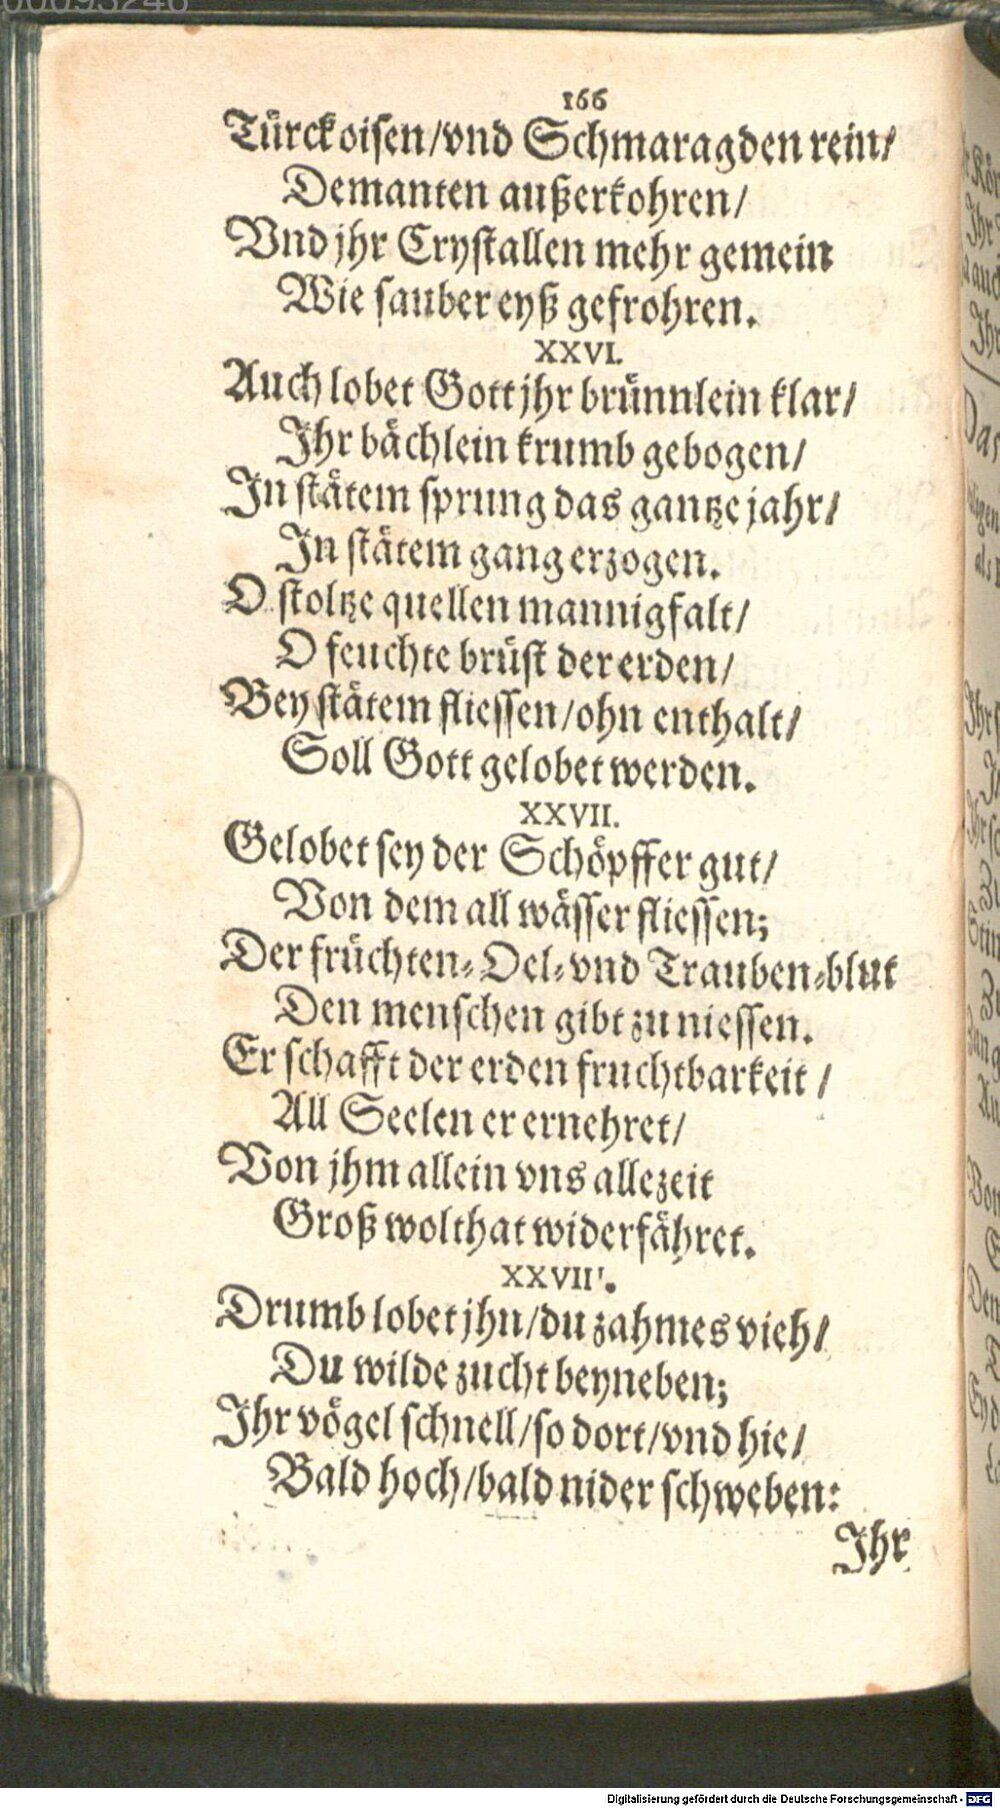 00093246
166
Türckoisen/vnd Schmaragden rein/
Demanten außerkohren/
Vnd jhr Crystallen mehr gemein
Wie sauber eyß gefrohren.
XXVI.
Auch lobet Gott jhr brünnlein klar/
Ihr bächlein krumb gebogen/
In stätem sprung das gantze jahr/
In stätem gang erzogen.
O stoltze quellen mannigfalt/
O feuchte brüst der erden/
Bey stätem fliessen/ohn enthalt/
Soll Gott gelobet werden.
XXVII.
Gelobet sey der Schöpffer gut/
Von dem all wässer fliessen;
Der früchten-Oel-vnd Trauben-blut
Den menschen gibt zu niessen.
Er schafft der erden fruchtbarkeit /
All Seelen er ernehret/
Von jhm allein vns allezeit
Groß wolthat widerfähret.
XXVIII.
Drumb lobet jhn/du zahmes vieh/
Du wilde zucht beyneben;
Ihr vögel schnell/so dort/vnd hie/
Bald hoch/bald nider schweben:
Ihr
Digitalisierung gefördert durch die Deutsche Forschungsgemeinschaft - DFG